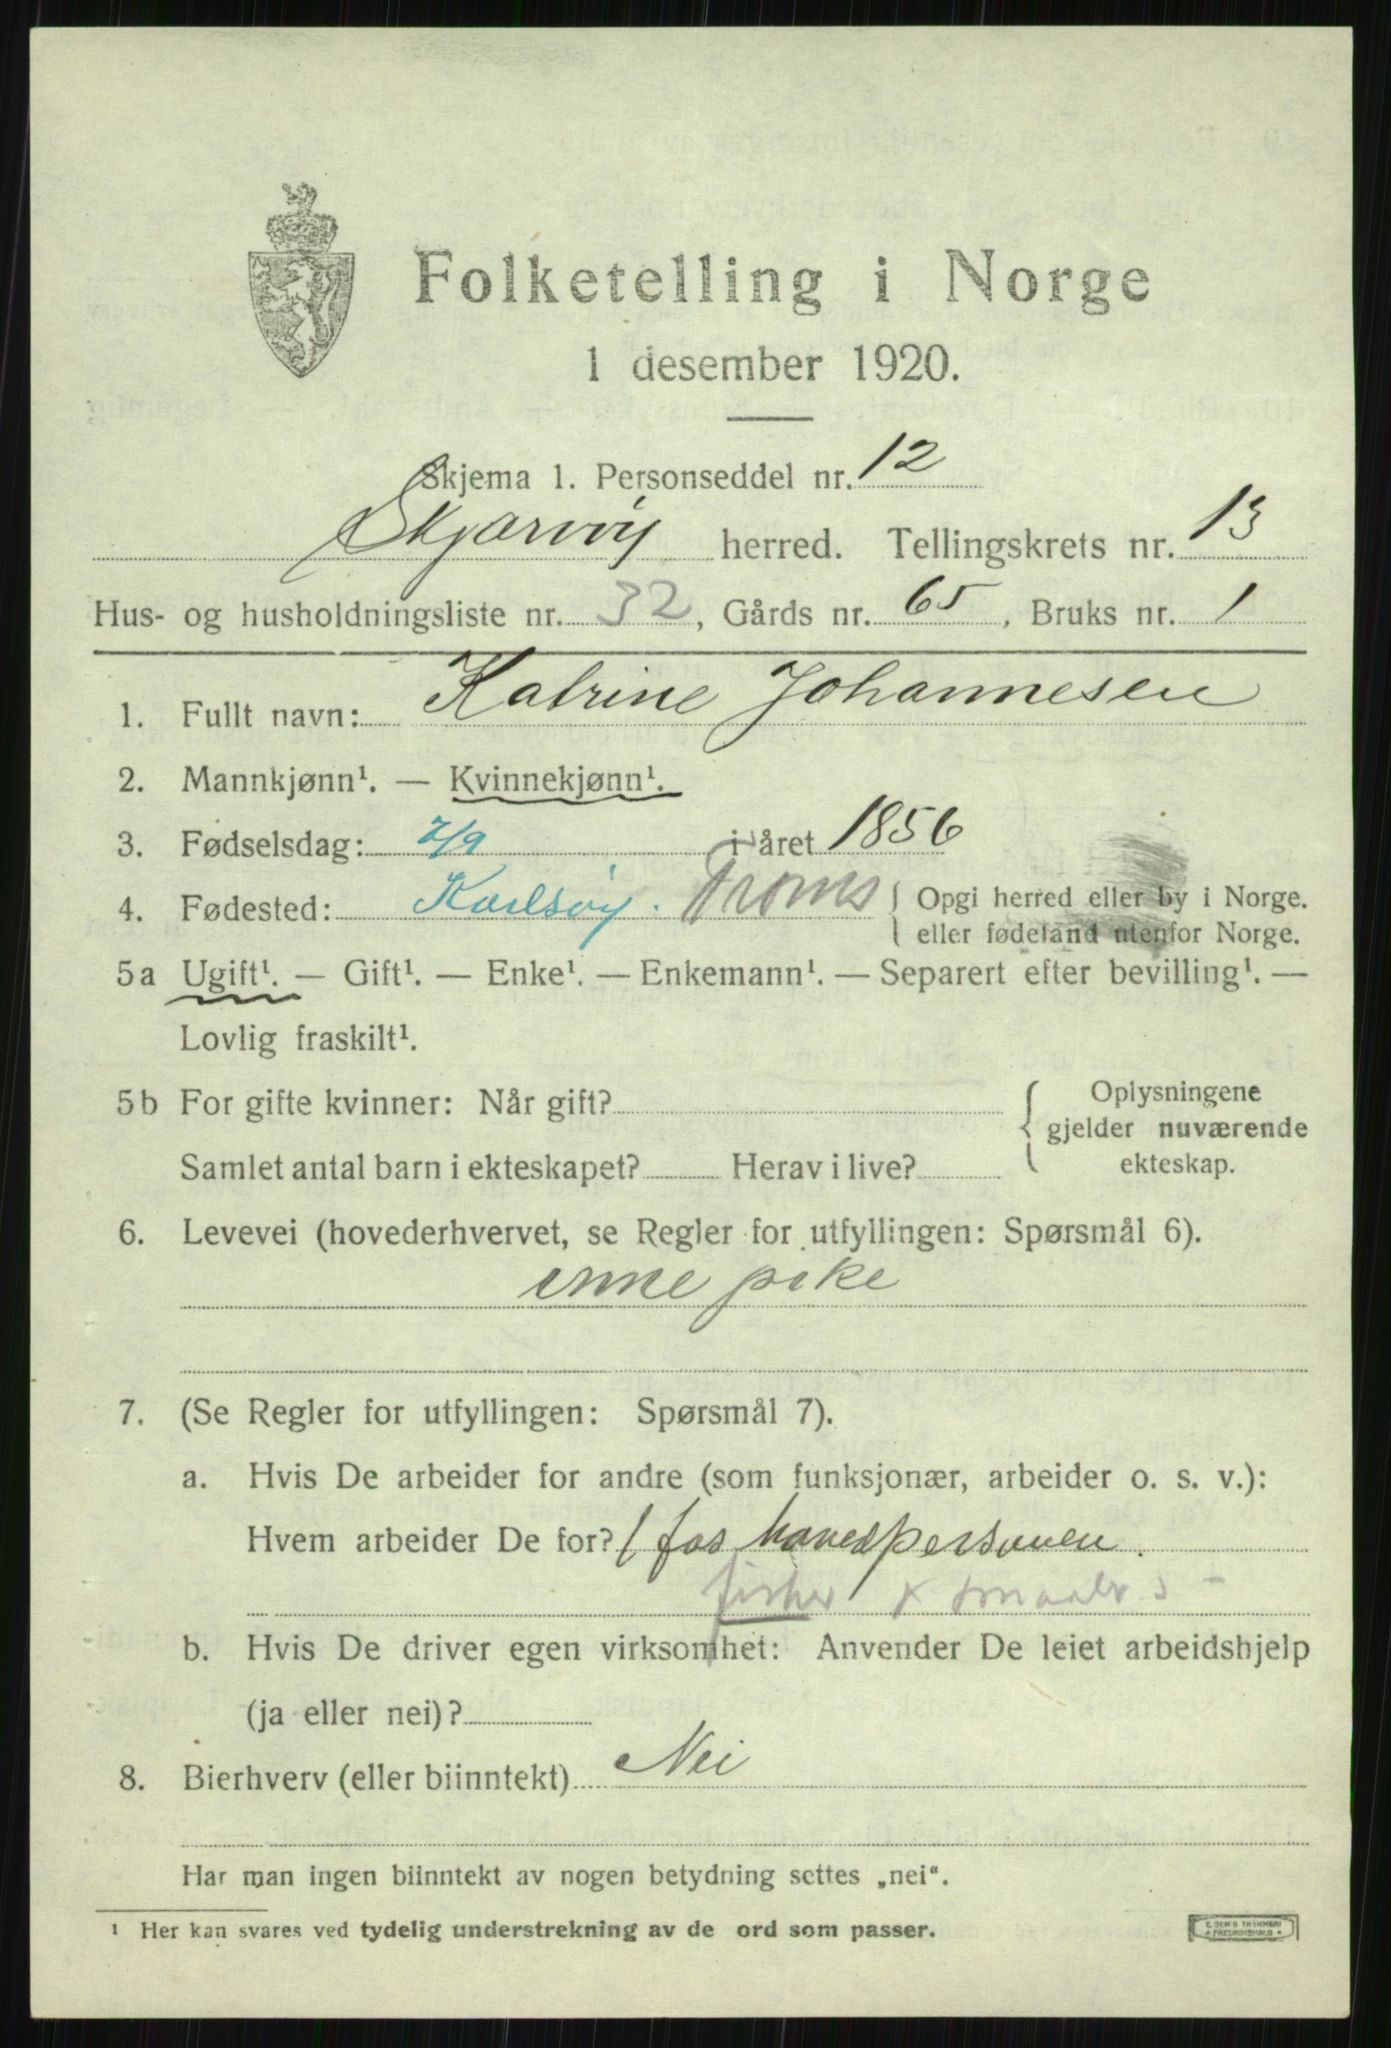 Folketelling i Norge
1 desember 1920.
Skjema 1. Personseddel nr. 12
Skjærvøy herred. Tellingskrets nr. 13
Hus- og husholdningsliste nr. 32, Gårds nr. 65, Bruks nr. 1
1. Fullt navn: Katrine Johannesen
2. Mannkjønn¹. — Kvinnekjønn¹.
3. Fødselsdag: 7/9 i året 1856
4. Fødested: Karlsøy. Troms { Opgi herred eller by i Norge.
eller fødeland utenfor Norge.
5a Ugift¹. — Gift¹. — Enke¹. — Enkemann¹. — Separert efter bevilling¹. —
Lovlig fraskilt¹.
5b For gifte kvinner: Når gift? { Oplysningene
gjelder nuværende
Samlet antal barn i ekteskapet? Herav i live? ekteskap.
6. Levevei (hovederhvervet, se Regler for utfyllingen: Spørsmål 6).
inne pike
7. (Se Regler for utfyllingen: Spørsmål 7).
a. Hvis De arbeider for andre (som funksjonær, arbeider o. s. v.):
Hvem arbeider De for? for hovedpersonen.
fisker x smaabr
b. Hvis De driver egen virksomhet: Anvender De leiet arbeidshjelp
(ja eller nei)?
8. Bierhverv (eller biinntekt) Nei
Har man ingen biinntekt av nogen betydning settes „nei“.
¹ Her kan svares ved tydelig understrekning av de ord som passer.